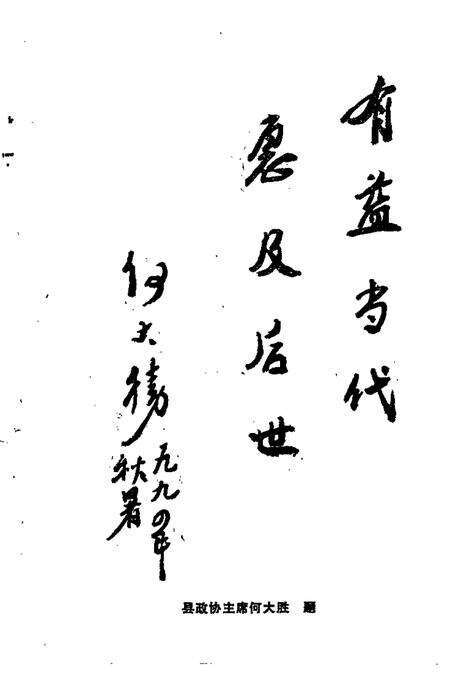 有益当代
愿及后世
何大勝
一九九四年
秋暑
县政协主席何大胜 题